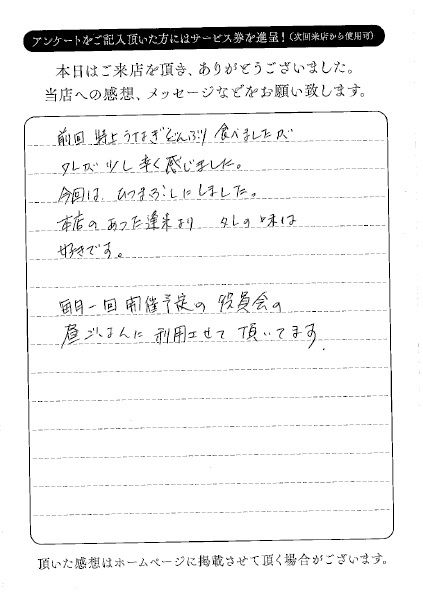 アンケートをご記入頂いた方にはサービス券を進呈！（次回来店から使用可）
本日はご来店を頂き、ありがとうございました。
当店への感想、メッセージなどをお願い致します。
前回 特上うなぎどんぶり 食べましたが
タレが 少し 辛く感じました。
今回は ひつまぶしにしました。
本店の あった 蓮米より タレの 味は
好きです。
毎月一回 開催予定の 役員会の
昼ごはんに 利用させて 頂いてます.
頂いた感想はホームページに掲載させて頂く場合がございます。